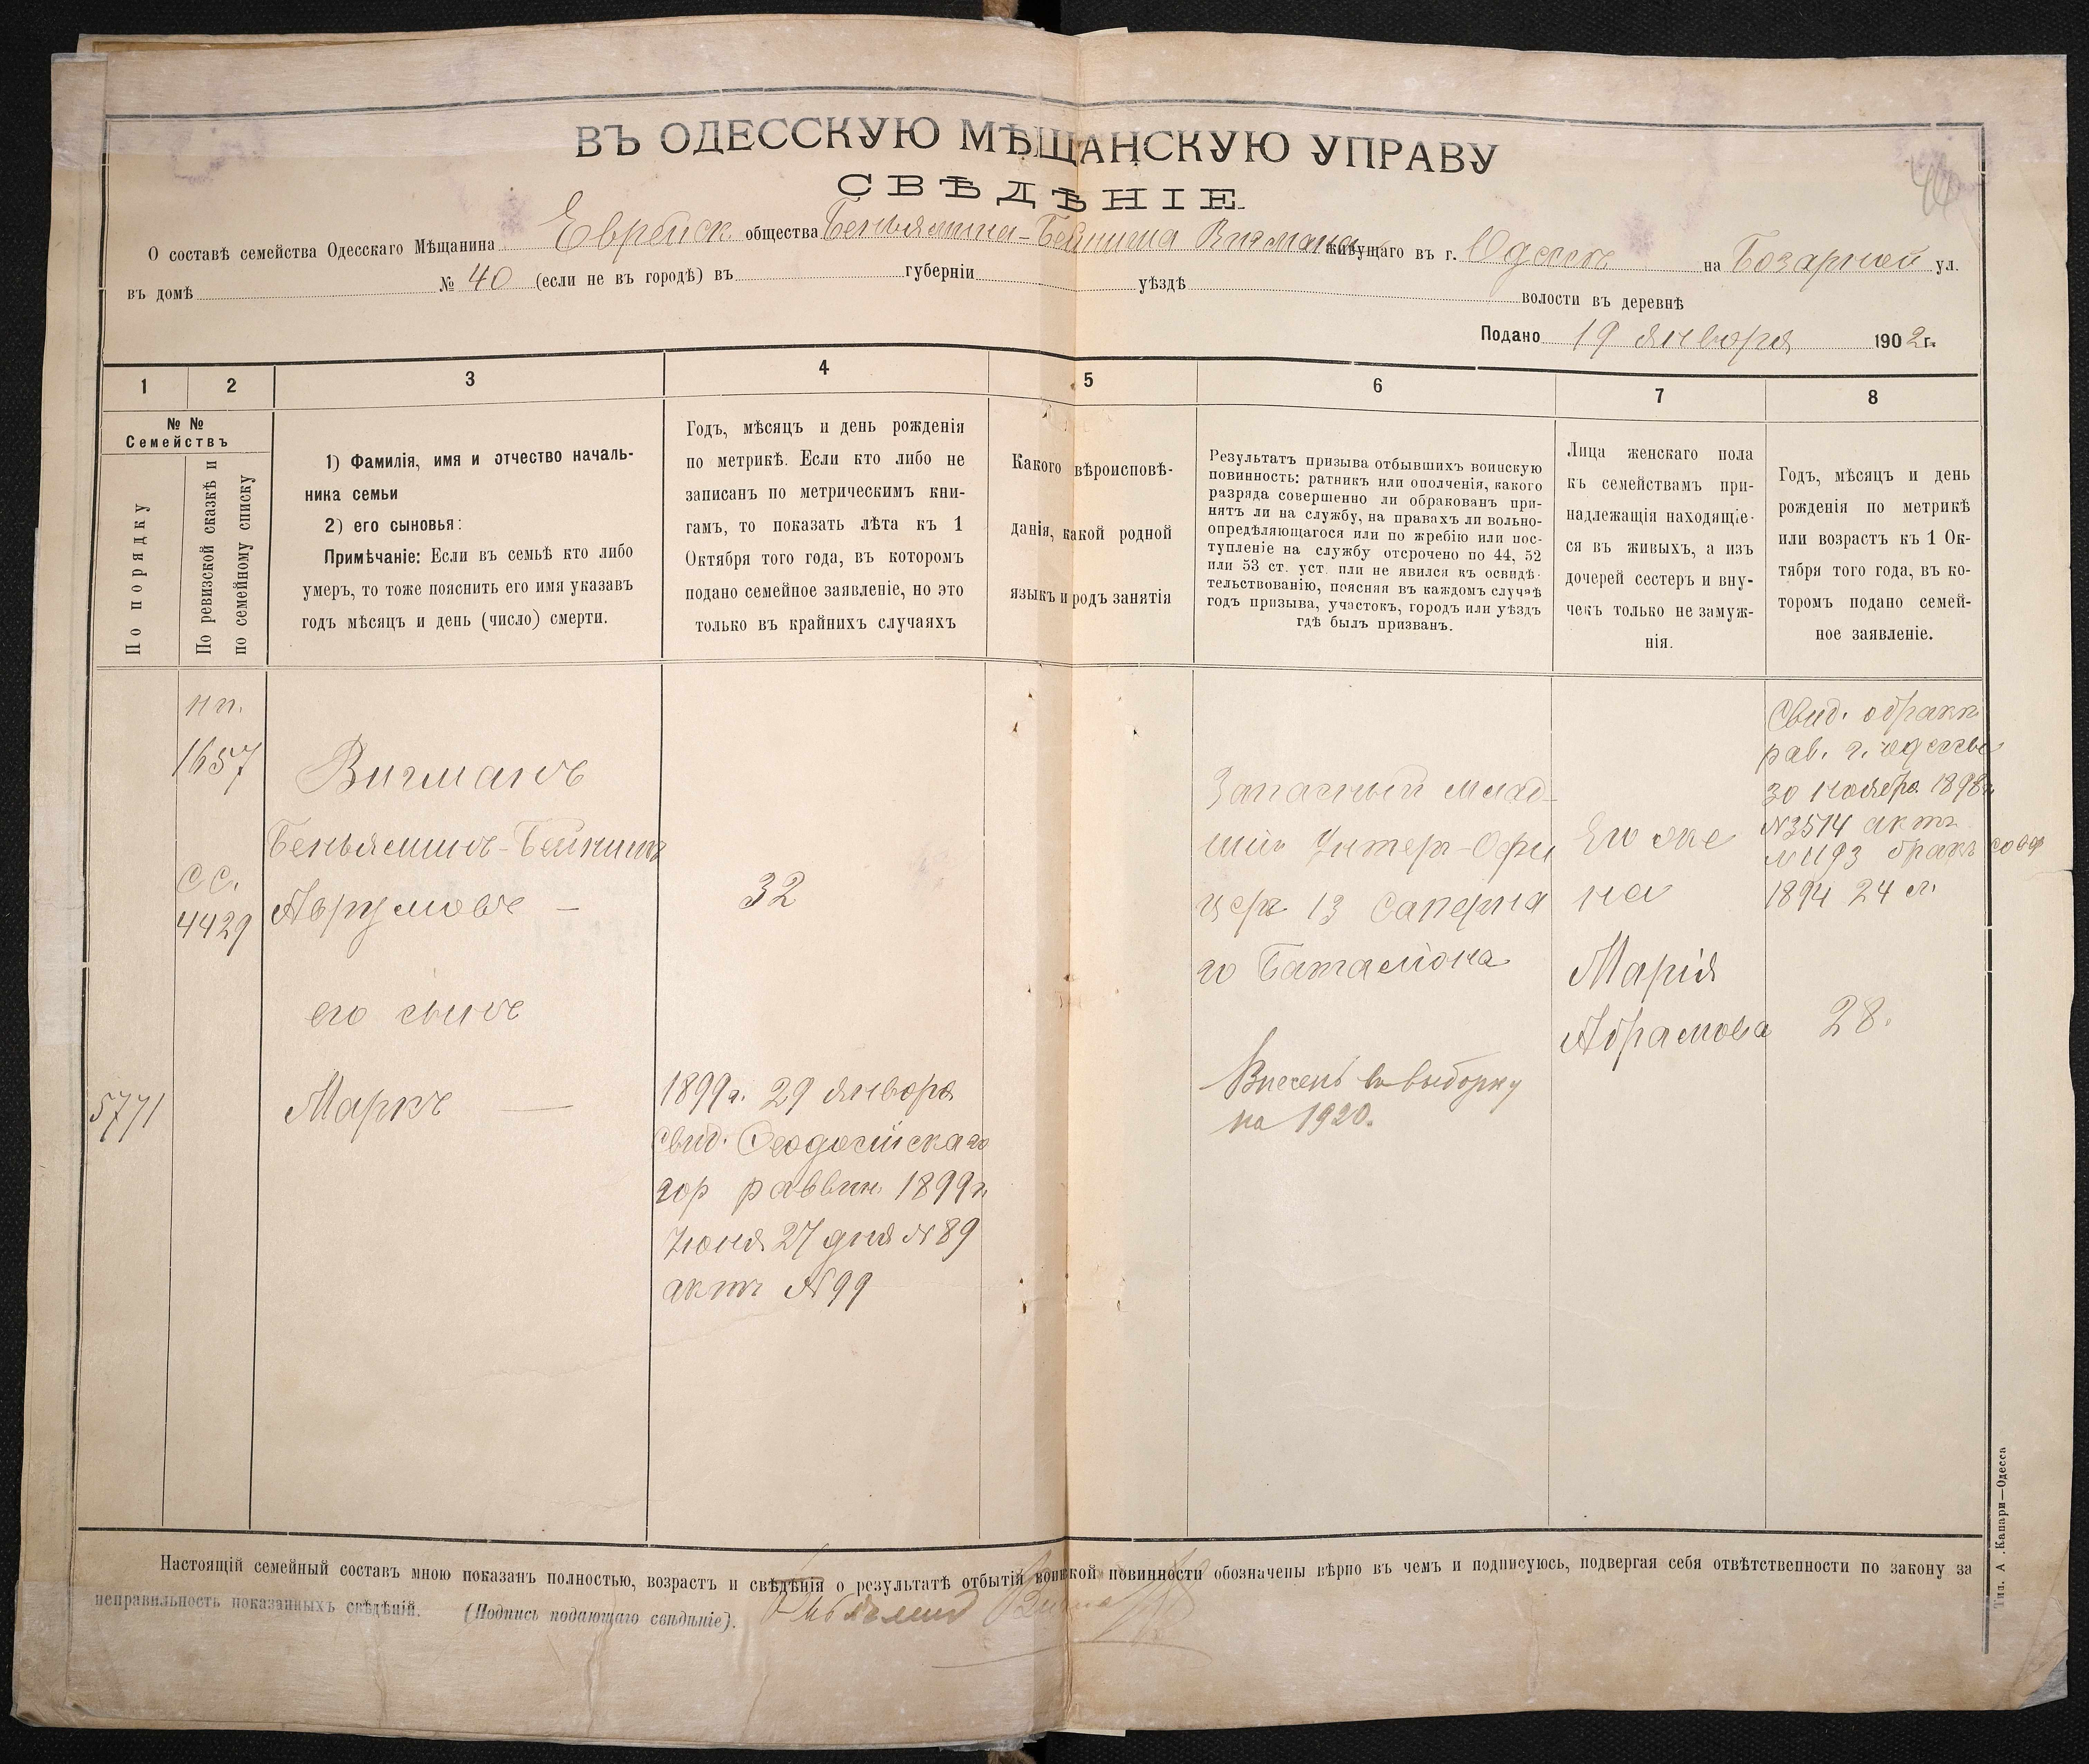 ВЪ ОДЕССКУЮ МѢЩАНСКУЮ УПРАВУ
СВѢДѢНІЕ
О составѣ семейства Одесскаго Мѣщанина Еврейск. общества Беньямина-Бейниша Вигмана живущаго въ г. Одессѣ на Базарной ул.
въ домѣ № 40 (если не въ городѣ) въ губерніи уѣздѣ волости въ деревнѣ
Подано 19 января 1902 г.
1 2 3 4 5 6 7 8
№ №
Семействъ
По порядку
По ревизской сказкѣ и
по семейному списку
1) Фамилія, имя и отчество началь-
ника семьи
2) его сыновья:
Примѣчаніе: Если въ семьѣ кто либо
умеръ, то тоже пояснить его имя указавъ
годъ мѣсяцъ и день (число) смерти.
Годъ, мѣсяцъ и день рожденія
по метрикѣ. Если кто либо не
записанъ по метрическимъ кни-
гамъ, то показать лѣта къ 1
Октября того года, въ которомъ
подано семейное заявленіе, но это
только въ крайнихъ случаяхъ
Какого вѣроисповѣ-
данія, какой родной
языкъ и родъ занятія
Результатъ призыва отбывшихъ воинскую
повинность: ратникъ или ополченія, какого
разряда совершенно ли обракованъ при-
нятъ ли на службу, на правахъ ли вольно-
опредѣляющагося или по жребію или пос-
тупленіе на службу отсрочено по 44, 52
или 53 ст. уст. или не явился къ освидѣ-
тельствованію, поясняя въ каждомъ случаѣ
годъ призыва, участокъ, городъ или уѣздъ
гдѣ былъ призванъ.
Лица женскаго пола
къ семействамъ при-
надлежащія находящіе-
ся въ живыхъ, а изъ
дочерей сестеръ и вну-
чекъ только не замуж-
нія.
Годъ, мѣсяцъ и день
рожденія по метрикѣ
или возрастъ къ 1 Ок-
тября того года, въ ко-
торомъ подано семей-
ное заявленіе.
нп.
1657
сс.
4429
5771
Вигманъ
Беньяминъ-Бейнишъ
Аврумовъ —
его сынъ
Маркъ —
32
1899 г. 29 января
свид. Феодосійскаго
гор раввин. 1899 г.
Іюня 27 дня № 89
актъ № 99
Запасный млад-
шій Унтер-Офи
церъ 13 Саперна
го Баталіона
Внесенъ въ выборку
на 1920.
Его же
на
Марія
Абрамова
Свид. о бракѣ
рав. г. Одессы
30 Ноября 1898 г.
№ 3514 актъ
№ 1193 бракъ
1894 24 л.
28.
Настоящій семейный составъ мною показанъ полностью, возрастъ и свѣдѣнія о результатѣ отбытія воинской повинности обозначены вѣрно въ чемъ и подписуюсь, подвергая себя отвѣтственности по закону за
неправильность показанныхъ свѣдѣній. (Подпись подающаго свѣдѣніе). Беньяминъ Вигманъ
Тип. А. Капари—Одесса